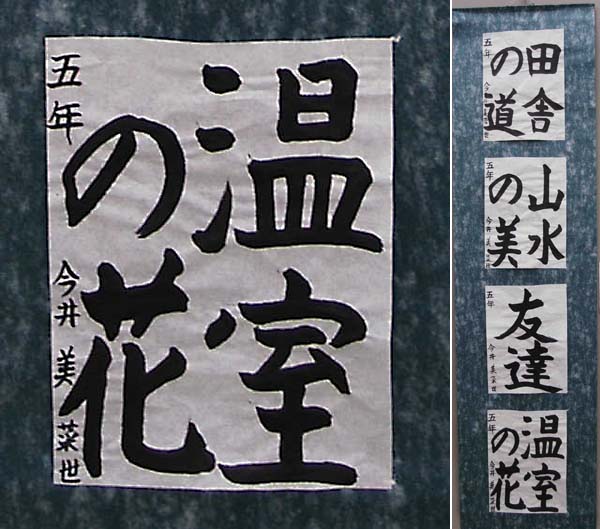 温室
の花
五年 今井美菜世
田舎
の道
五年
山水
の美
五年 今井美菜世
友達
五年 今井美菜世
温室
の花
五年 今井美菜世